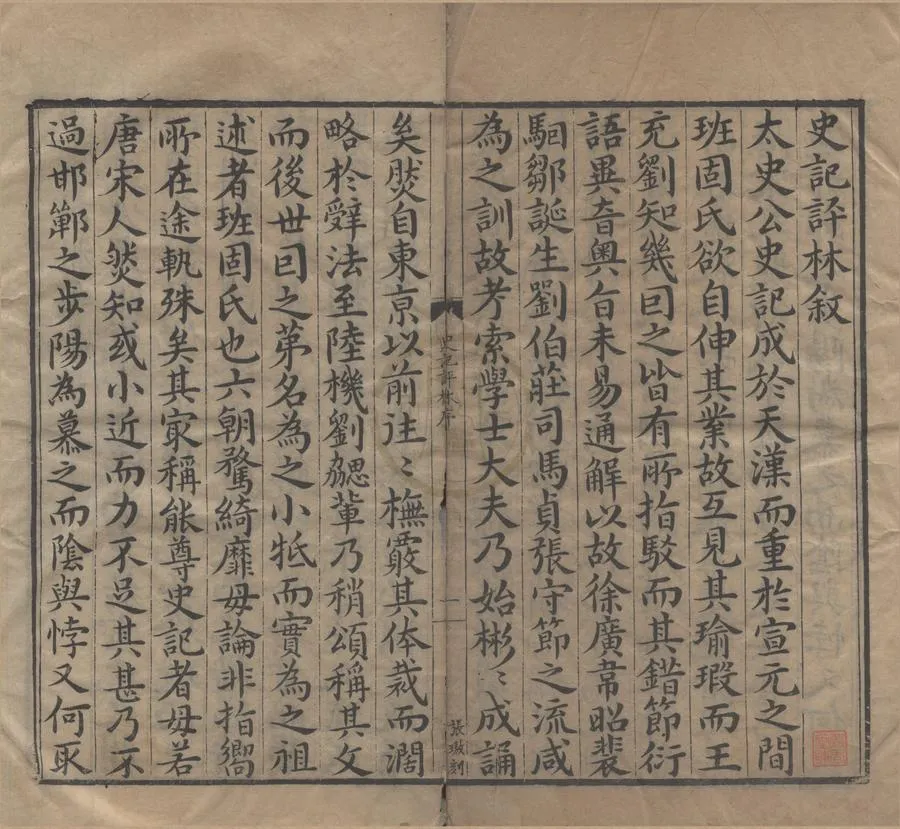 史記評林敘
太史公史記成於天漢而重於宣元之間
班固氏欲自伸其業故互見其瑜瑕而王
充劉知幾囙之皆有所指駁而其錯節衍
語異音奥旨未易通解以故徐廣韋昭裴
駰鄒誕生劉伯莊司馬貞張守節之流咸
為之訓故考索學士大夫乃始彬〻成誦
史記評林序
一
張璈刻
矣然自東京以前往〻橅覈其体裁而濶
略於辭法至陸機劉勰輩乃稍頌稱其文
而後世囙之苐名為之小牴而實為之祖
述者班固氏也六朝騖綺靡毋論非指嚮
所在途軌殊矣其最稱能尊史記者毋若
唐宋人然知或小近而力不足其甚乃不
過邯鄲之步陽為慕之而陰與悖又何取